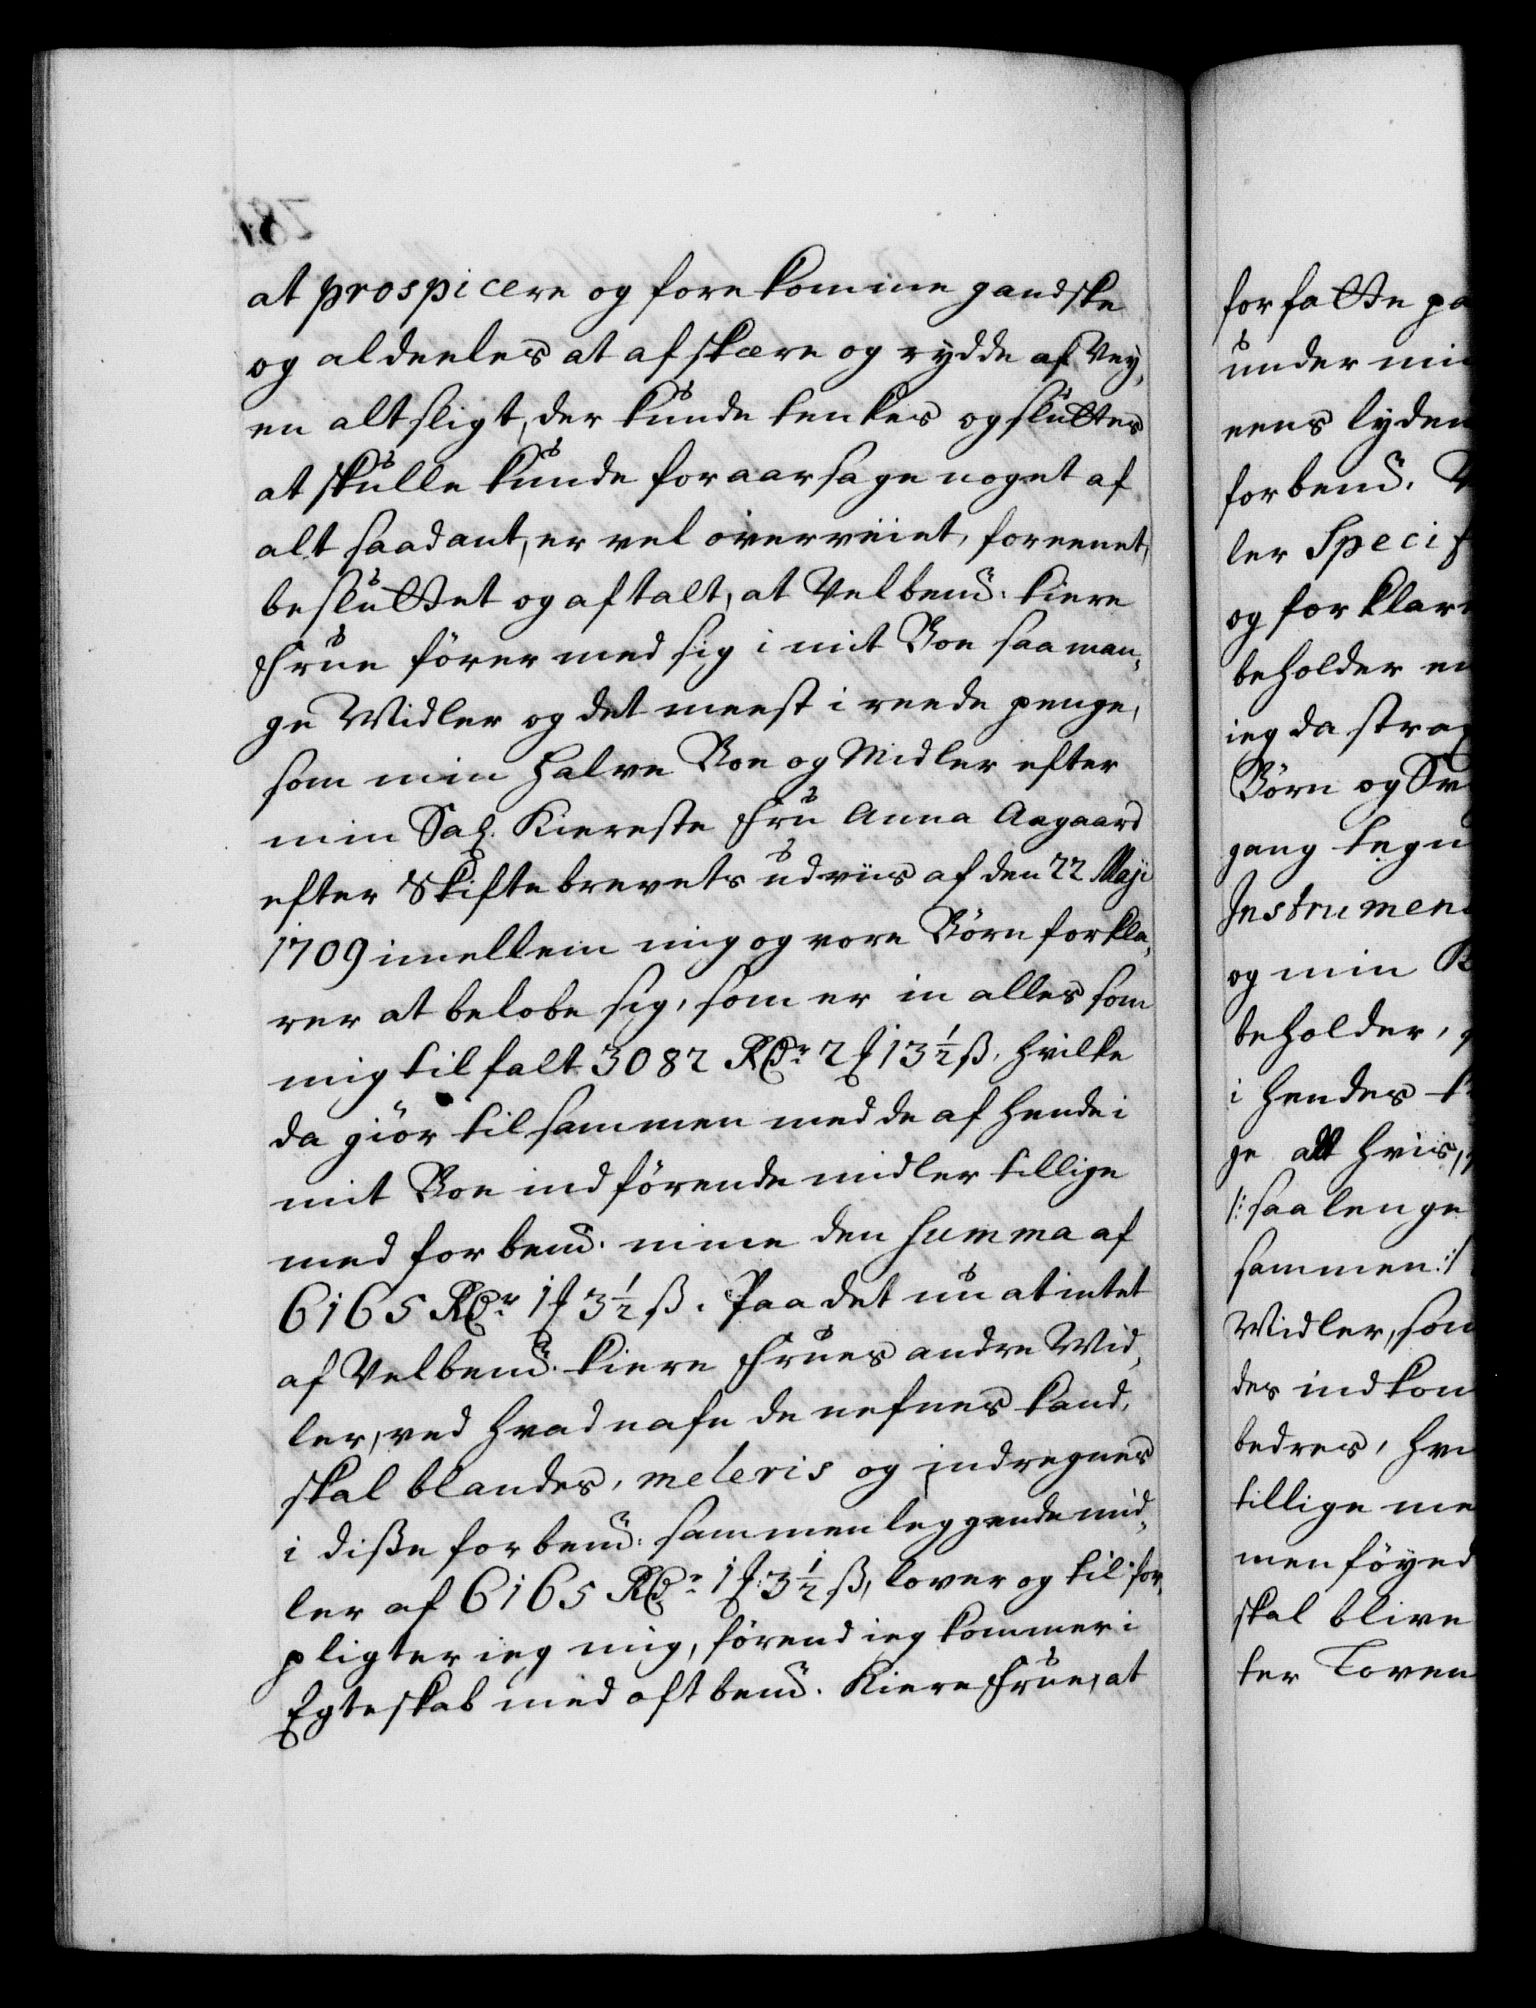 at prospicere og forekomme gandske
og aldeeles at afskære og rydde af Vey,
en alt sligt, der kunde tenkes og sluttes
at skulle kunde foraarsage noget af
alt saadant, er vel overveiet, foreenet,
besluttet og aftalt, at Velbemd. kiere
Frue fører med sig i mit Boe saa man,
ge Midler og det meest i reede penge,
som min halve Boe og Midler efter
min Sal. Kiereste Fru Anna Aagaard
efter Skiftebrevets udviis af den 22 Maji
1709 imellem mig og vore Børn forkla,
rer at belobe sig, som er in alles som
mig tilfalt 3082 Rdr 2 ₰ 13½ ß, hvilke
da giør tilsammen med de af hende i
mit Boe indførende midler tillige
med forbemd. mine den Summa af
6165 Rdr 1 ₰ 3½ ß. Paa det nu at intet
af Velbemd. kiere Frues andre Mid,
ler, ved hvad nafn de nefnes kand,
skal blandes, meleris og indregnes
i disse forbemd. sammenleggende mid,
ler af 6165 Rdr 1 ₰: 3½ ß, lover og tilfor,
pligter ieg mig, førend ieg kommer i
Egteskab med oftbemd. Kiere Frue, at
forfatte pa
under mi
eens lyden
forbemd.
ler Specif
og forklar
beholder en
ieg da strax
Børn og Sv
gang
Instrumen
og min K
beholder,
i hendes
ge alt hvis,
/: saa lenge
sammen :/
Midler, som
des indkom
bedres, hv
tillige me
men føyed
skal blive
ter Loven